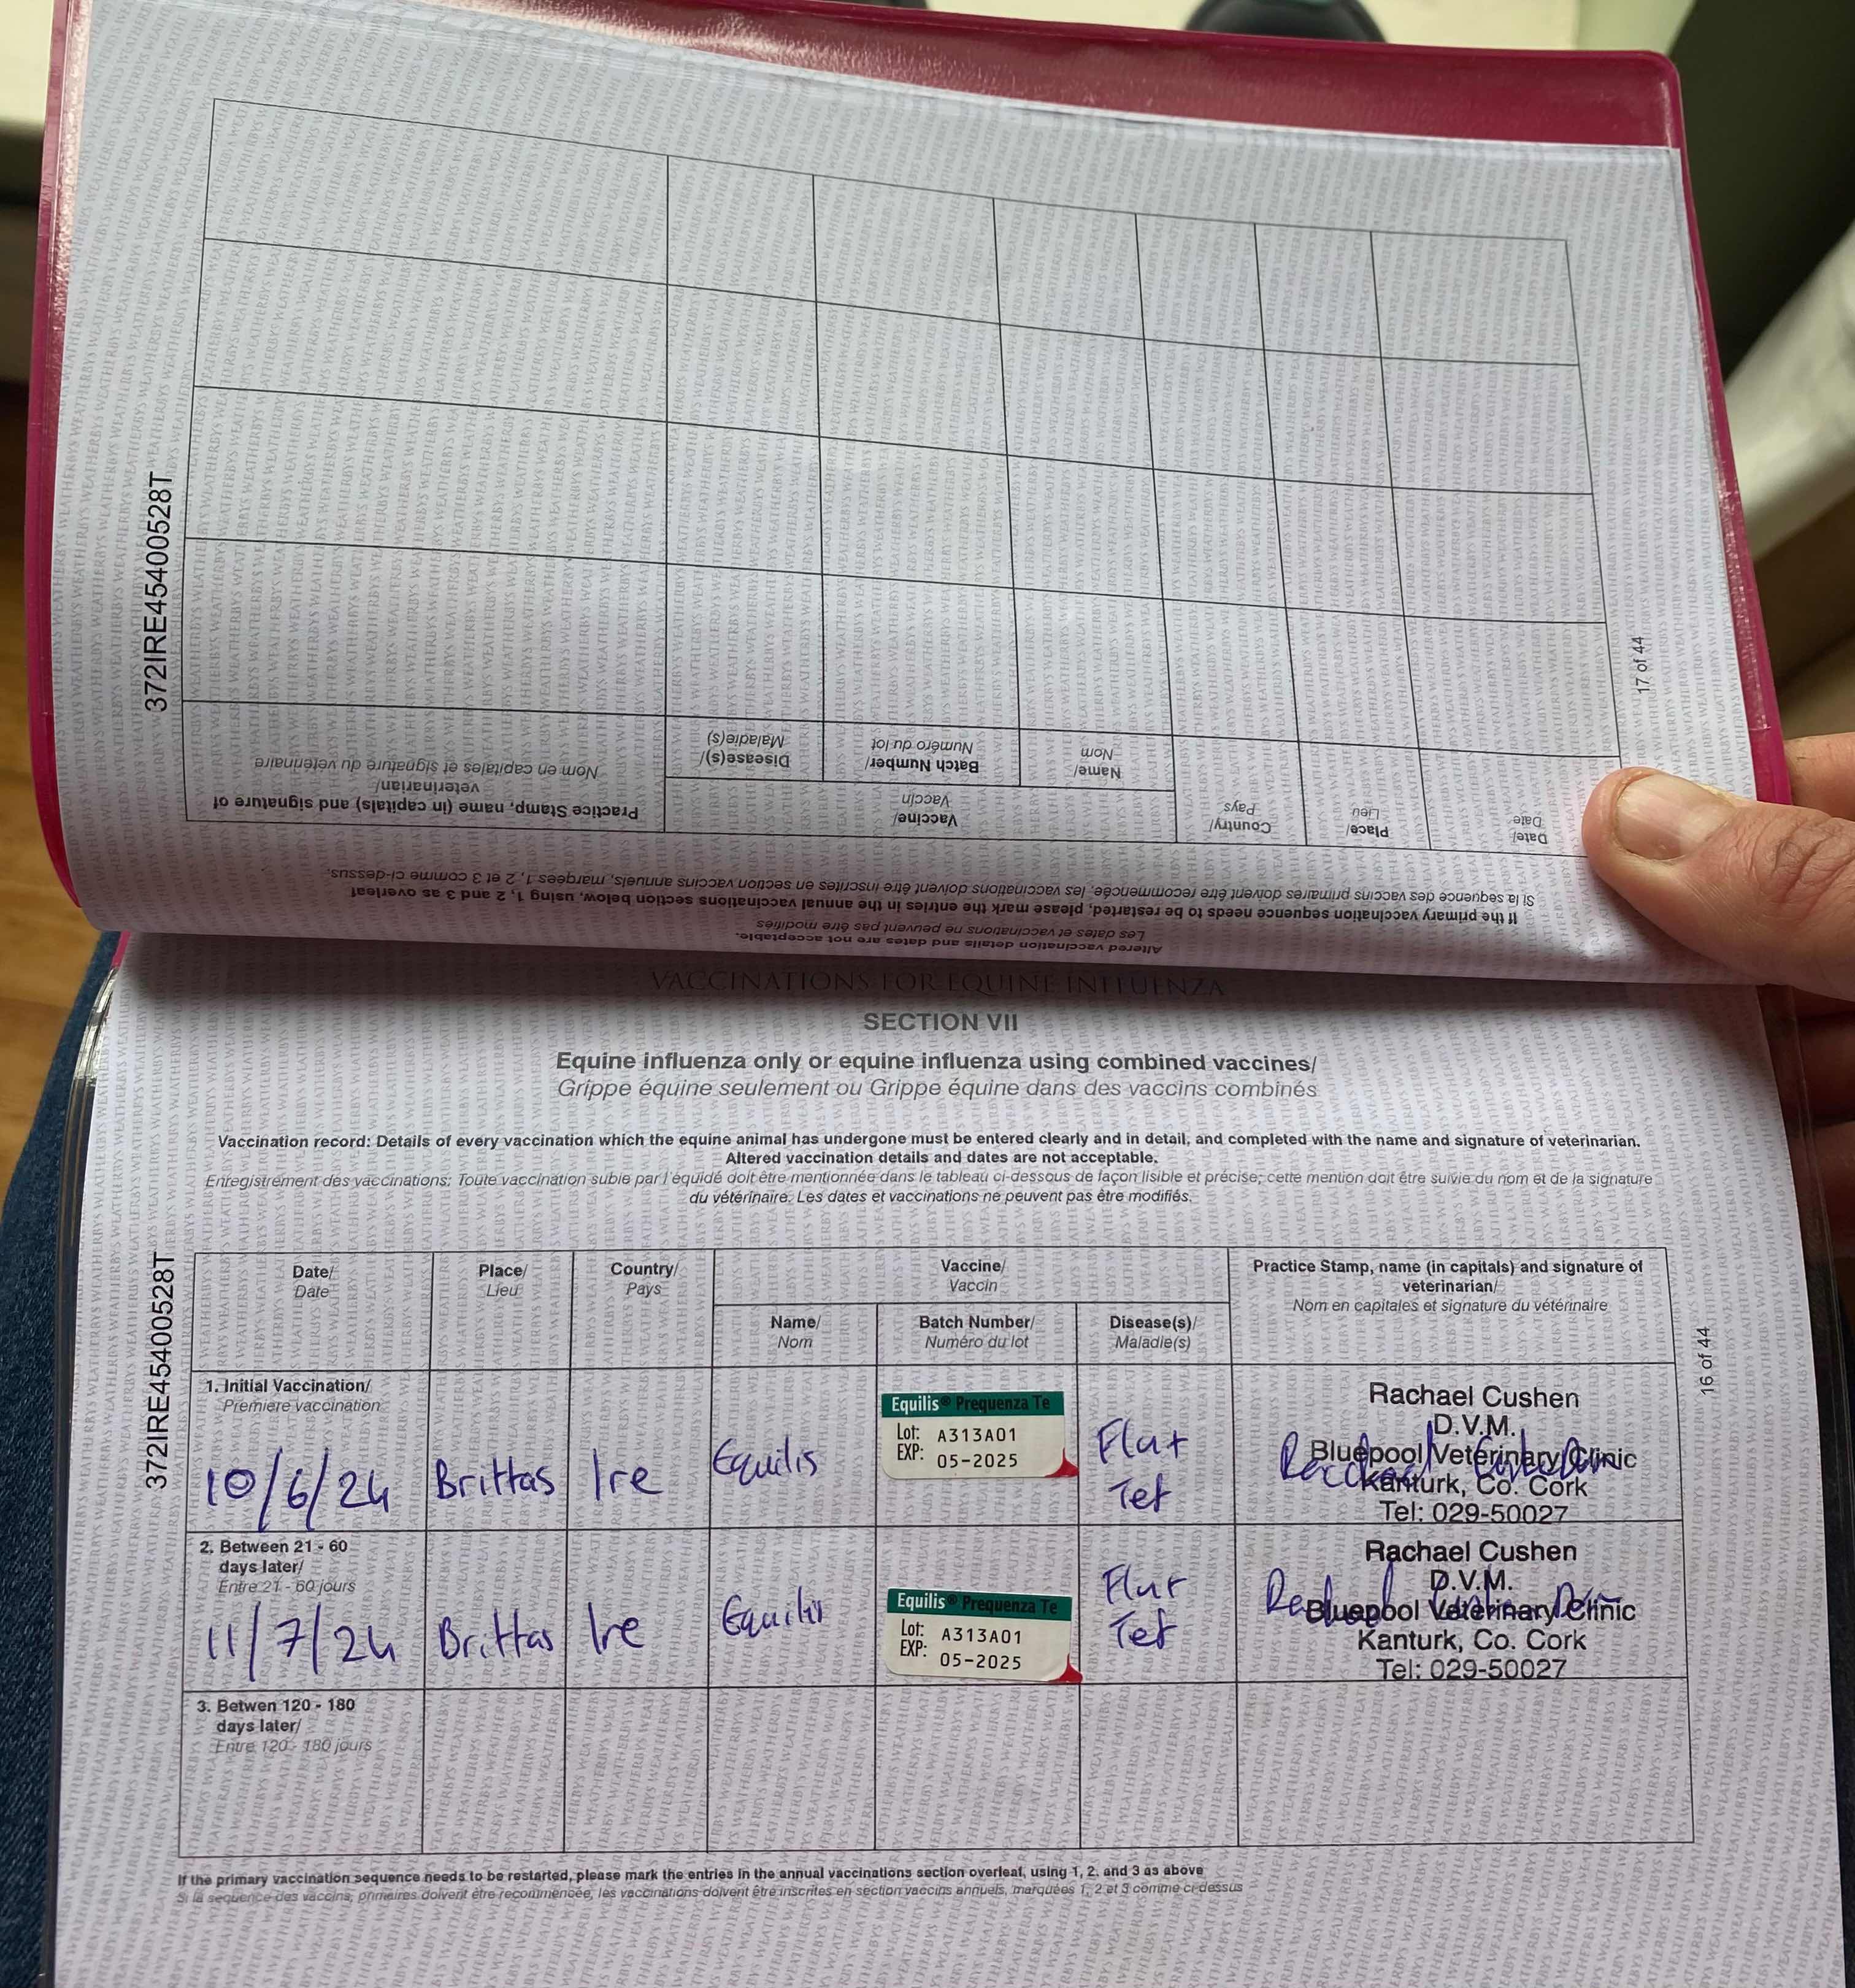 372IRE45400528T
17 of 44
Altered vaccination details and dates are not acceptable.
Les dates et vaccinations ne peuvent pas être modifiés
If the primary vaccination sequence needs to be restarted, please mark the entries in the annual vaccinations section below, using 1, 2 and 3 as overleaf
Si la séquence des vaccins primaires doivent être recommencée, les vaccinations doivent être inscrites en section vaccins annuels, marquées 1, 2 et 3 comme ci-dessus,
Date/
Date
Place/
Lieu
Country/
Pays
Vaccine/
Vaccin
Name/
Nom
Batch Number/
Numéro du lot
Disease(s)/
Maladie(s)
Practice Stamp, name (in capitals) and signature of
veterinarian/
Nom en capitales et signature du vétérinaire
VACCINATIONS FOR EQUINE INFLUENZA
SECTION VII
Equine influenza only or equine influenza using combined vaccines/
Grippe équine seulement ou Grippe équine dans des vaccins combinés
Vaccination record: Details of every vaccination which the equine animal has undergone must be entered clearly and in detail, and completed with the name and signature of veterinarian.
Altered vaccination details and dates are not acceptable.
Enregistrement des vaccinations: Toute vaccination subie par l'équidé doit être mentionnée dans le tableau ci-dessous de façon lisible et précise; cette mention doit être suivie du nom et de la signature
du vétérinaire. Les dates et vaccinations ne peuvent pas être modifiés.
372IRE45400528T
16 of 44
Date/
Date
Place/
Lieu
Country/
Pays
Vaccine/
Vaccin
Name/
Nom
Batch Number/
Numéro du lot
Disease(s)/
Maladie(s)
Practice Stamp, name (in capitals) and signature of
veterinarian/
Nom en capitales et signature du vétérinaire
1. Initial Vaccination/
Premiere vaccination
10/6/24
Brittas
Ire
Equilis
Equilis® Prequenza Te
Lot: A313A01
EXP: 05-2025
Flu +
Tet
Rachael Cushen
D.V.M.
Bluepool Veterinary Clinic
Kanturk, Co. Cork
Tel: 029-50027
2. Between 21 - 60
days later/
Entre 21 - 60 jours
11/7/24
Brittas
Ire
Equilis
Equilis® Prequenza Te
Lot: A313A01
EXP: 05-2025
Flu +
Tet
Rachael Cushen
D.V.M.
Bluepool Veterinary Clinic
Kanturk, Co. Cork
Tel: 029-50027
3. Betwen 120 - 180
days later/
Entre 120 - 180 jours
If the primary vaccination sequence needs to be restarted, please mark the entries in the annual vaccinations section overleaf, using 1, 2. and 3 as above
Si la sequence des vaccins, primaires doivent être recommencée, les vaccinations doivent être inscrites en section vaccins annuels, marquées 1, 2 et 3 comme ci-dessus